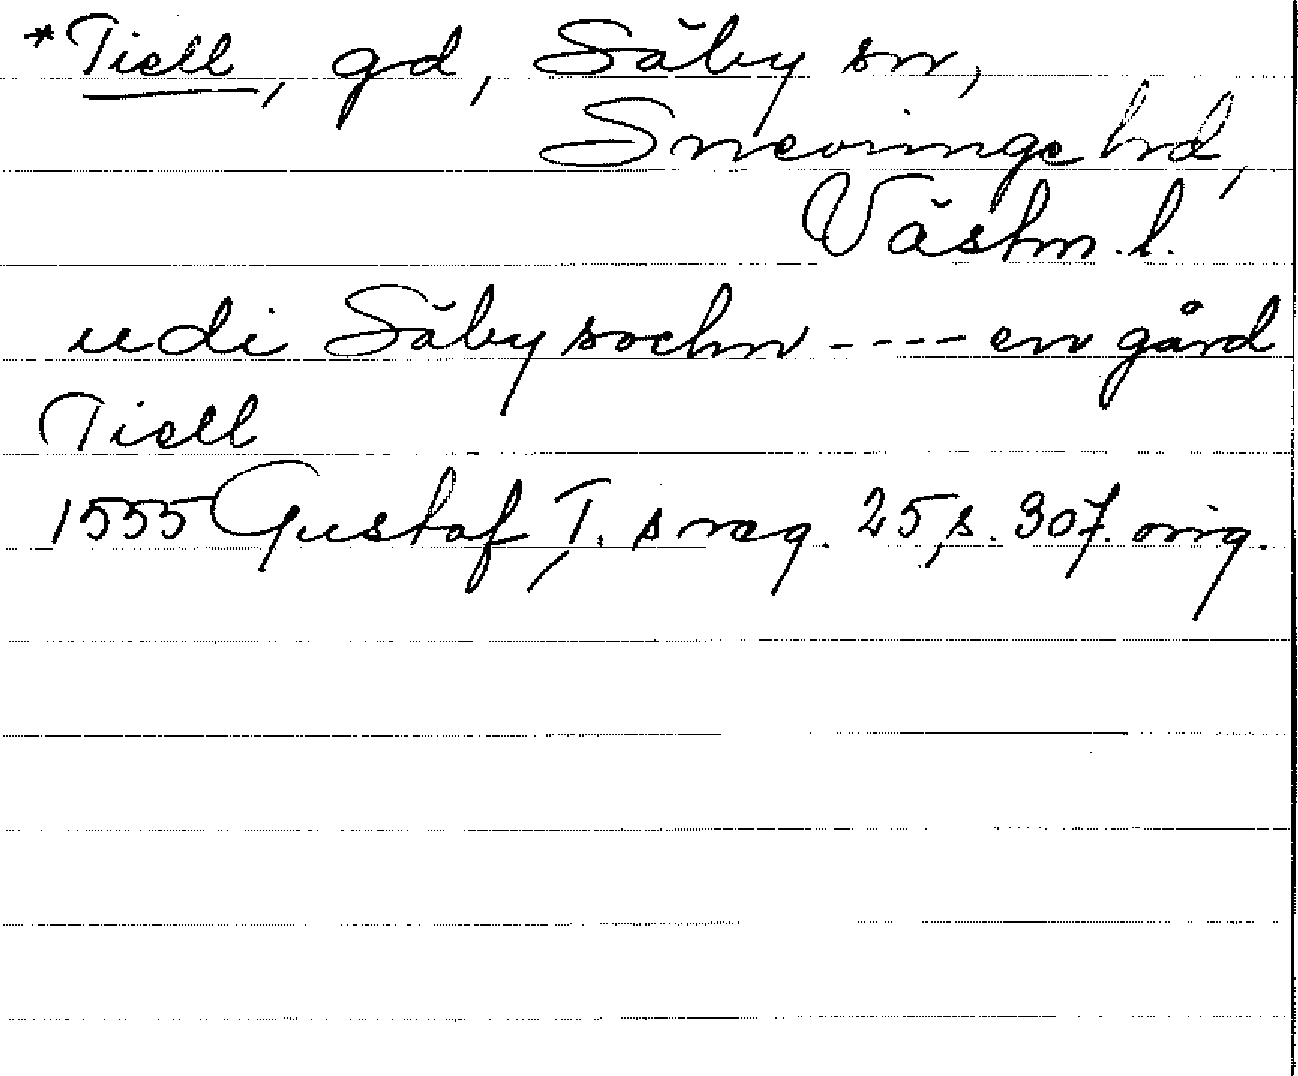 *Tiell, gd, Säby sn,
Snevringe hd,
Västm. l.
udi Säby sochn ---- en gård
Tiell
1555 Gustaf I, s reg. 25, s. 307. orig.